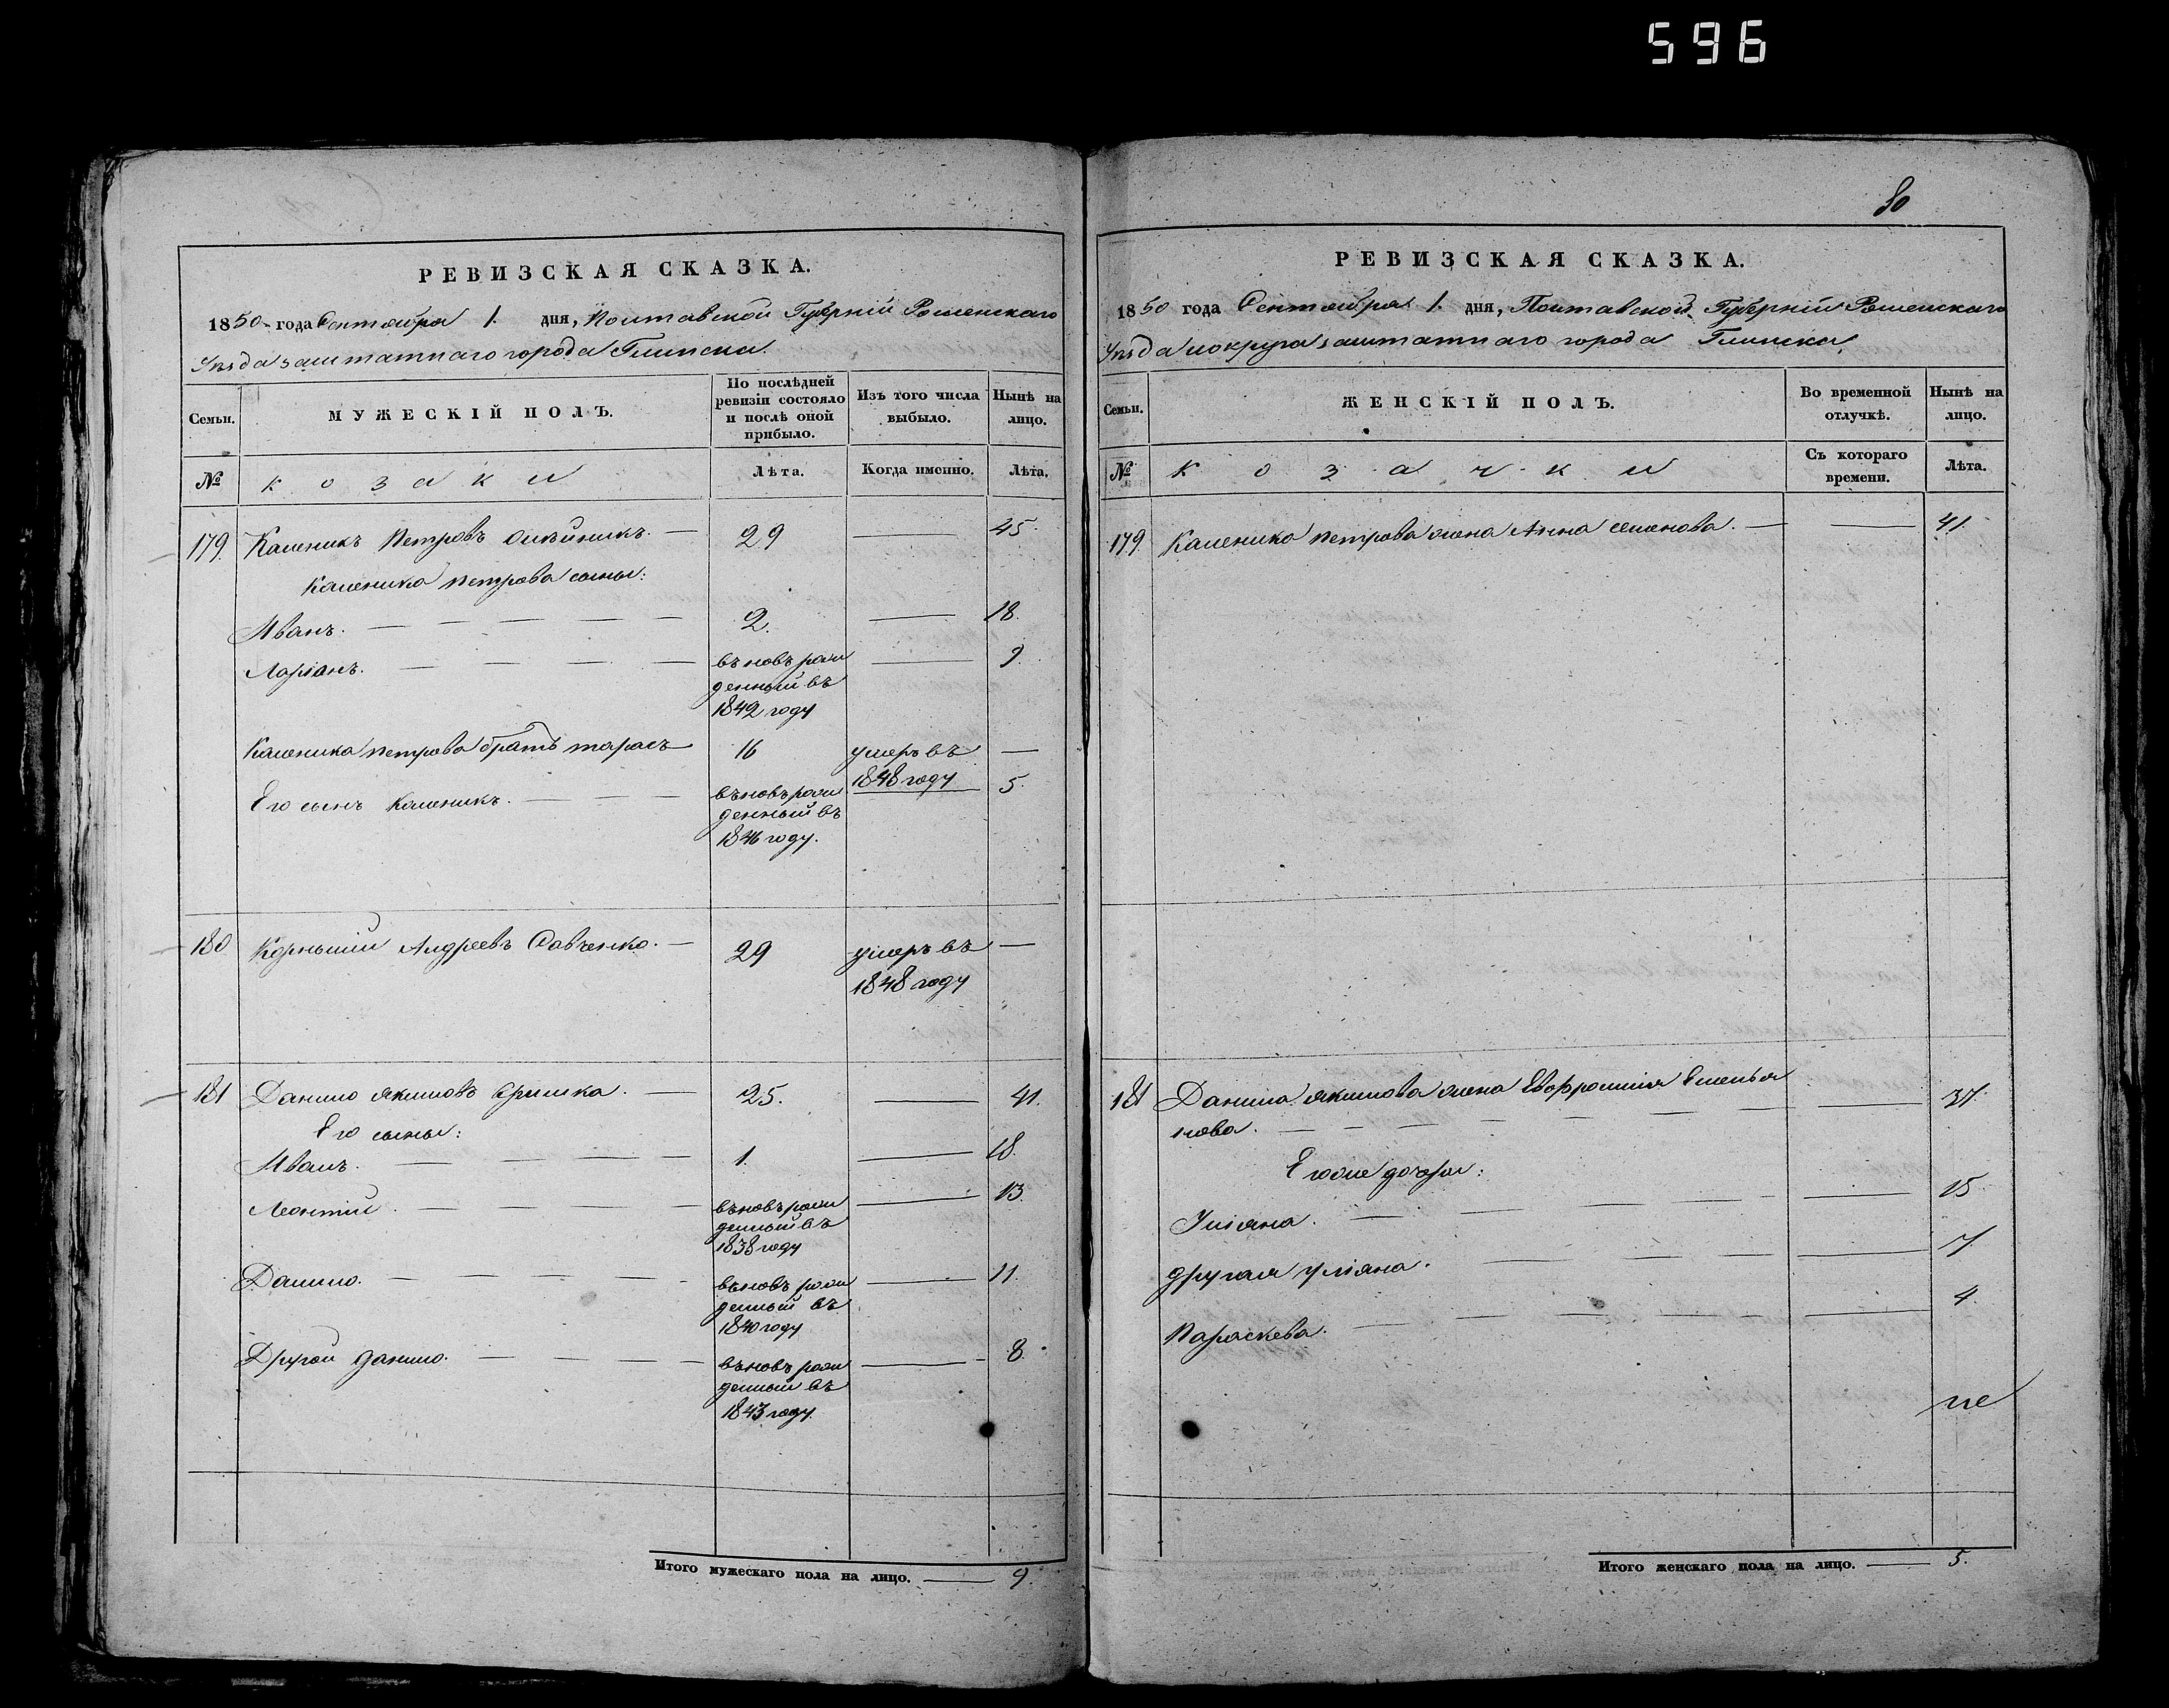 596
80
РЕВИЗСКАЯ СКАЗКА.
1850 года Сентября 1. дня, Полтавской Губерніи Роменскаго
Уѣзда заштатнаго города Глинска.
Семьи.
МУЖЕСКІЙ ПОЛЪ.
По послѣдней
ревизіи состояло
и послѣ оной
прибыло.
Изъ того числа
выбыло.
Нынѣ на
лицо.
№
козаки
Лѣта.
Когда именно.
Лѣта.
179. Каленикъ Петровъ Олѣйникъ. — 29 — 45.
Каленика Петрова сыны:
Иванъ. — 2. — 18.
Ларіонъ. — въновь рож — 9.
денный въ
1842 году
Каленика Петрова братъ тарасъ 16 умеръ въ —
1848 году
Его сынъ Каленикъ. — въновь рож — 5.
денный въ
1846 году.
180 Корнилій Андреевъ Савченко. — 29 умеръ въ —
1848 году
181 Данило Якимовъ — 25. — 41.
Его сыны:
Иванъ. — 1. — 18.
Леонтій. — въновь рож — 13.
денный въ
1838 году
Данило. — въновь рож — 11.
денный въ
1840 году
Другой Данило. — въновь рож — 8.
денный въ
1843 году.
Итого мужескаго пола на лицо. — 9.
РЕВИЗСКАЯ СКАЗКА.
1850 года Сентября 1. дня, Полтавской Губерніи Роменскаго
Уѣзда и округа заштатнаго города Глинска
Семьи.
ЖЕНСКІЙ ПОЛЪ.
Во временной
отлучкѣ.
Нынѣ на
лицо.
№
козачки
Съ котораго
времени.
Лѣта.
179. Каленика Петрова жена Анна Семенова. — — 41.
181 Данила Якимова жена Евфросинія Емелья — 37.
нова. —
Его же дочери:
Уліяна. — — 15
другая уліяна. — — 7.
Параскева. — — 4.
Итого женскаго пола на лицо. — 5.